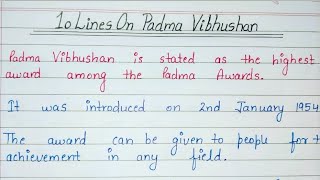 10 Lines On Padma Vibhushan
Padma Vibhushan is stated as the highest
award among the Padma Awards.
It was introduced on 2nd January 1954
The award can be given to people for
achievement in any field.